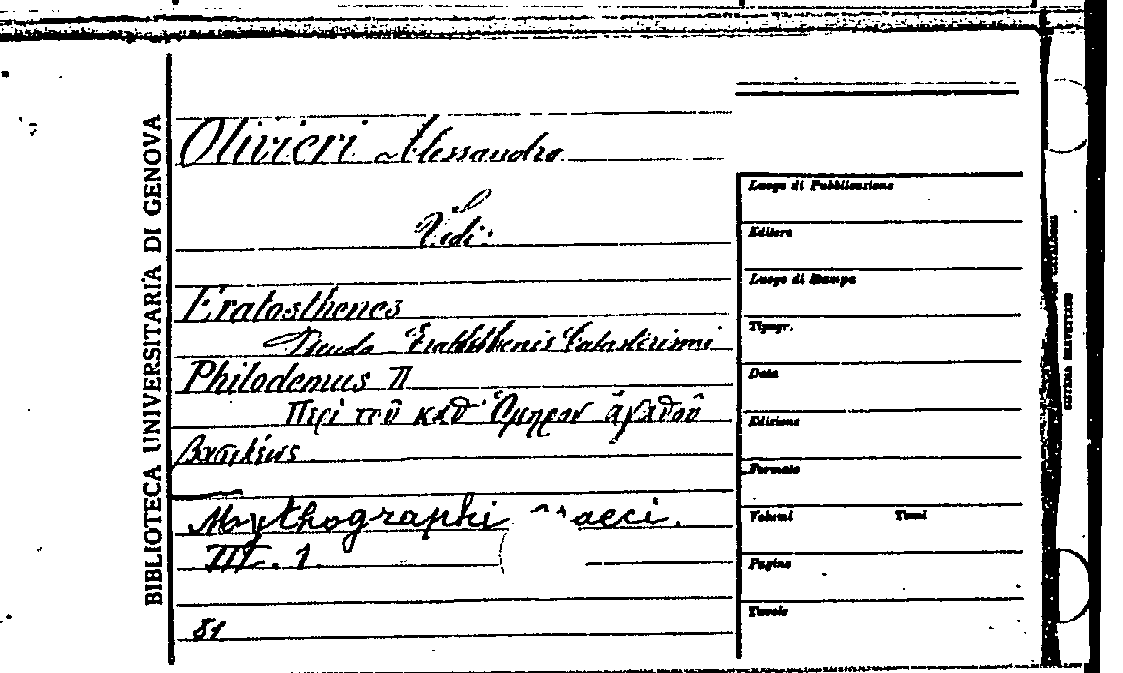 BIBLIOTECA UNIVERSITARIA DI GENOVA
Olivieri Alessandro
Vedi:
Eratosthenes
Pseudo Eratosthenis Catasterismi
Philodemus Π
Περὶ τοῦ καθ' Ὅμηρον ἀγαθοῦ
βασιλέως
Mythographi
III. 1.
81
Luogo di Pubblicazione
Editore
Luogo di Stampa
Tipogr.
Data
Edizione
Formato
Volumi Tomi
Pagine
Tavole